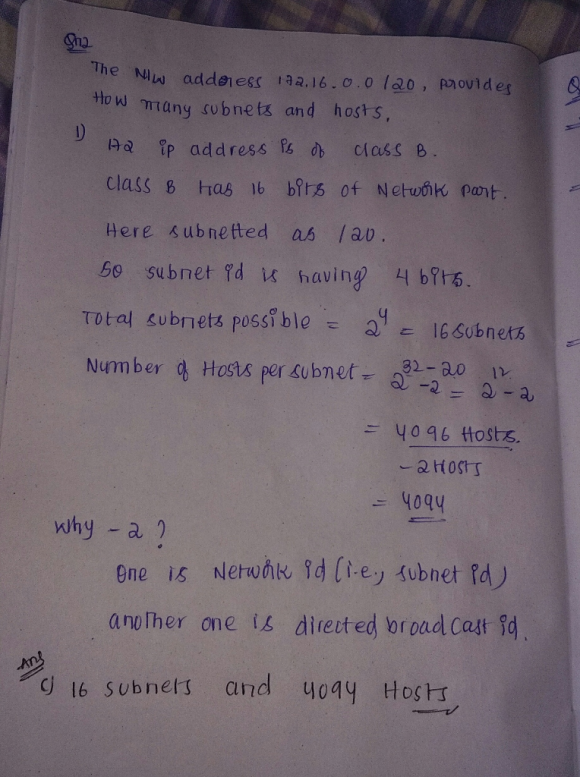 Qn2
The N/w address 172.16.0.0/20, provides
How many subnets and hosts,
1) 172 ip address is of class B.
class B has 16 bits of Network part.
Here subnetted as /20.
So subnet id is having 4 bits.
Total subnets possible = 2^4 = 16 subnets
Number of Hosts per subnet = 2^(32-20) -2 = 2^12 - 2
= 4096 Hosts.
- 2 Hosts
= 4094
Why - 2 ?
One is Network id (i.e., subnet id)
another one is directed broadcast id.
Ans
c) 16 subnets and 4094 Hosts